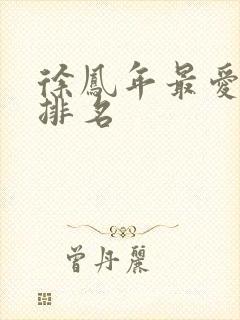 徐鳳年最愛
排名
曾丹麗